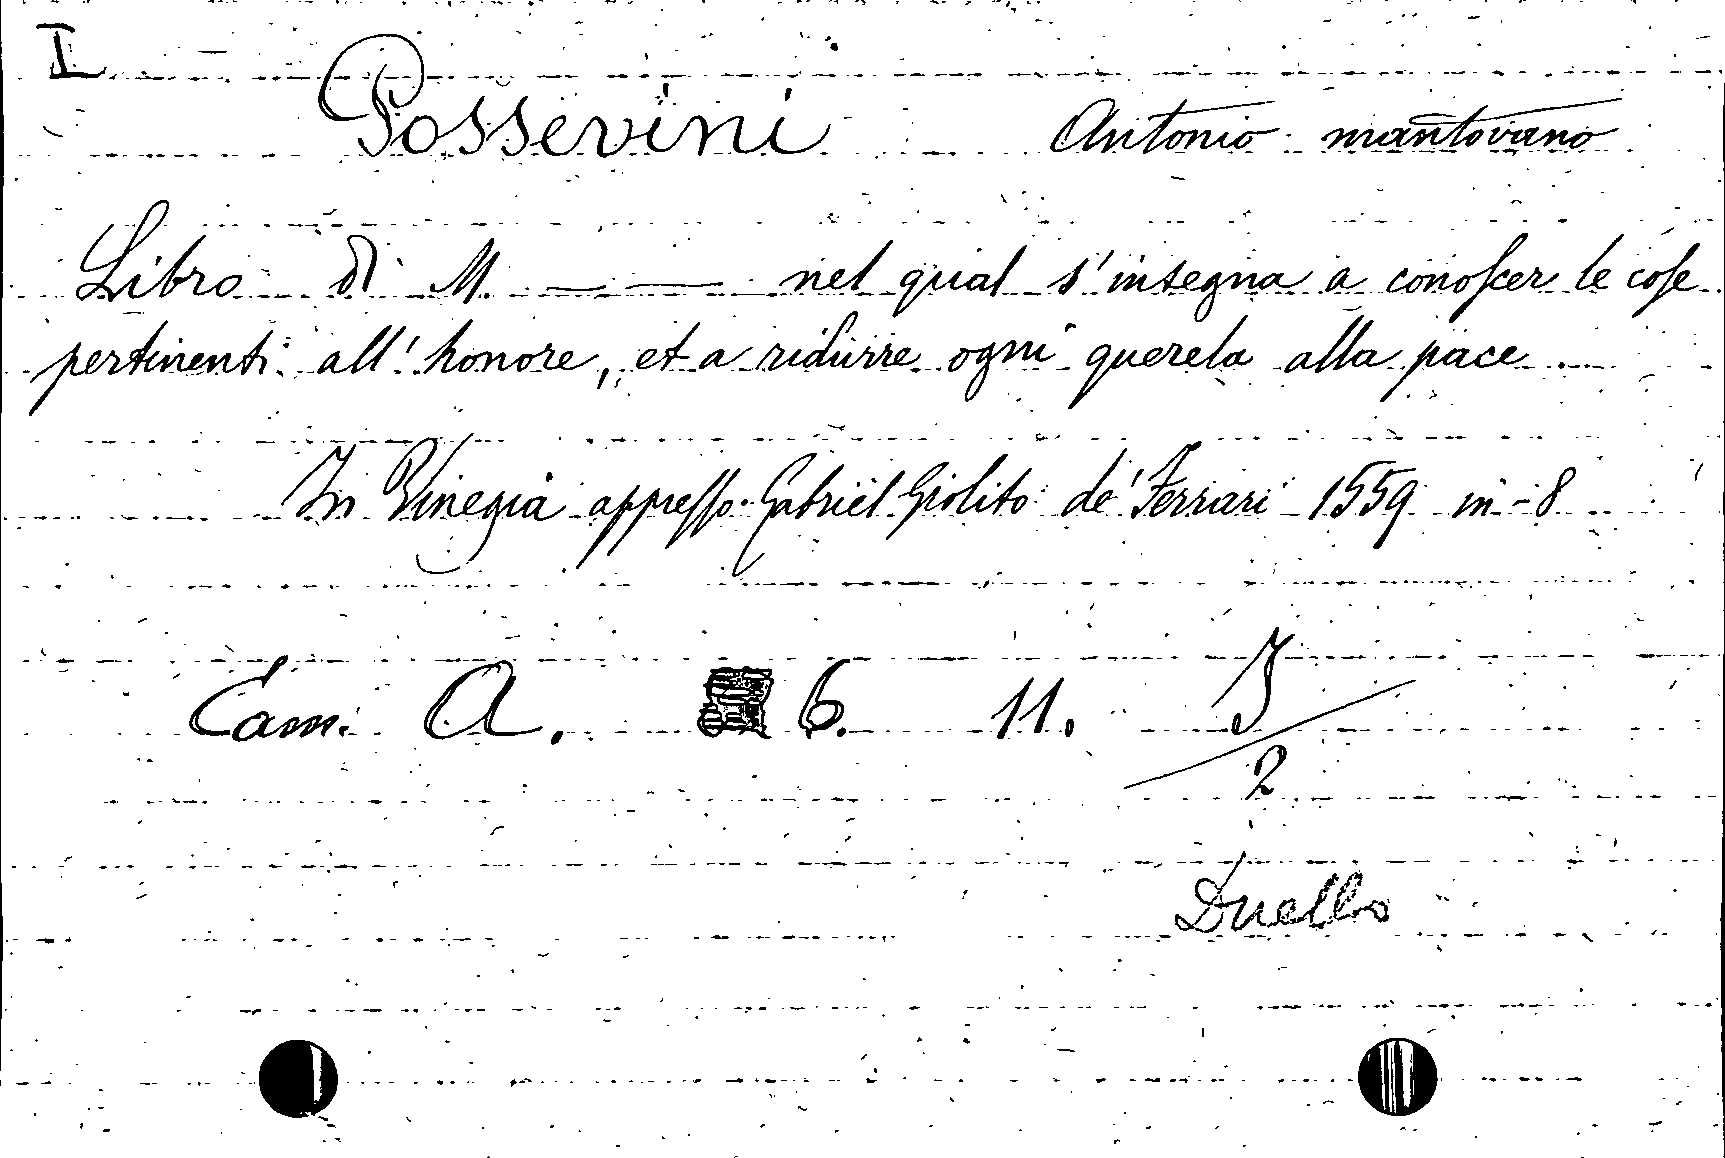 I
Possevini Antonio mantovano
Libro di M. — — nel qual s'insegna a conoſcer le coſe
pertinenti all'honore, et a ridurre ogni querela alla pace
In Vinegia appreſſo Gabriel Giolito de' Ferrari 1559 in-8
Cam. A. 6. 11. I/2
Duello